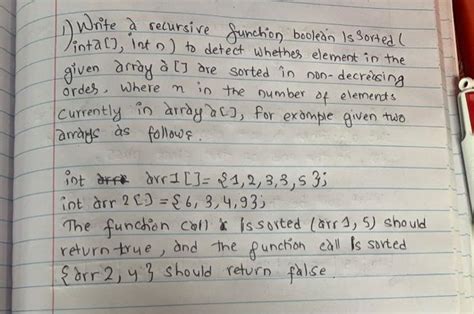 1) Write a recursive function boolean Is Sorted (
int a[], int n) to detect whether element in the
given array a[] are sorted in non-decreasing
order, where n in the number of elements
currently in array a[], for example given two
arrays as follows.
int arr1[]= {1,2,3,3,5};
int arr 2[] = {6, 3, 4, 9};
The function call is Issorted (arr1, 5) should
return true, and the function call Is sorted
{arr 2, 4} should return false.